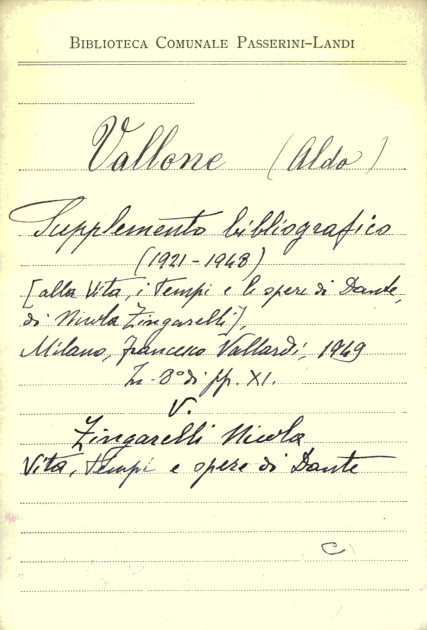 BIBLIOTECA COMUNALE PASSERINI-LANDI
Vallone (Aldo)
Supplemento bibliografico
(1921-1948)
[alla Vita, i tempi e le opere di Dante,
di Nicola Zingarelli],
Milano, Francesco Vallardi, 1949
In-8° di pp. XI.
V.
Zingarelli Nicola
Vita, tempi e opere di Dante
C